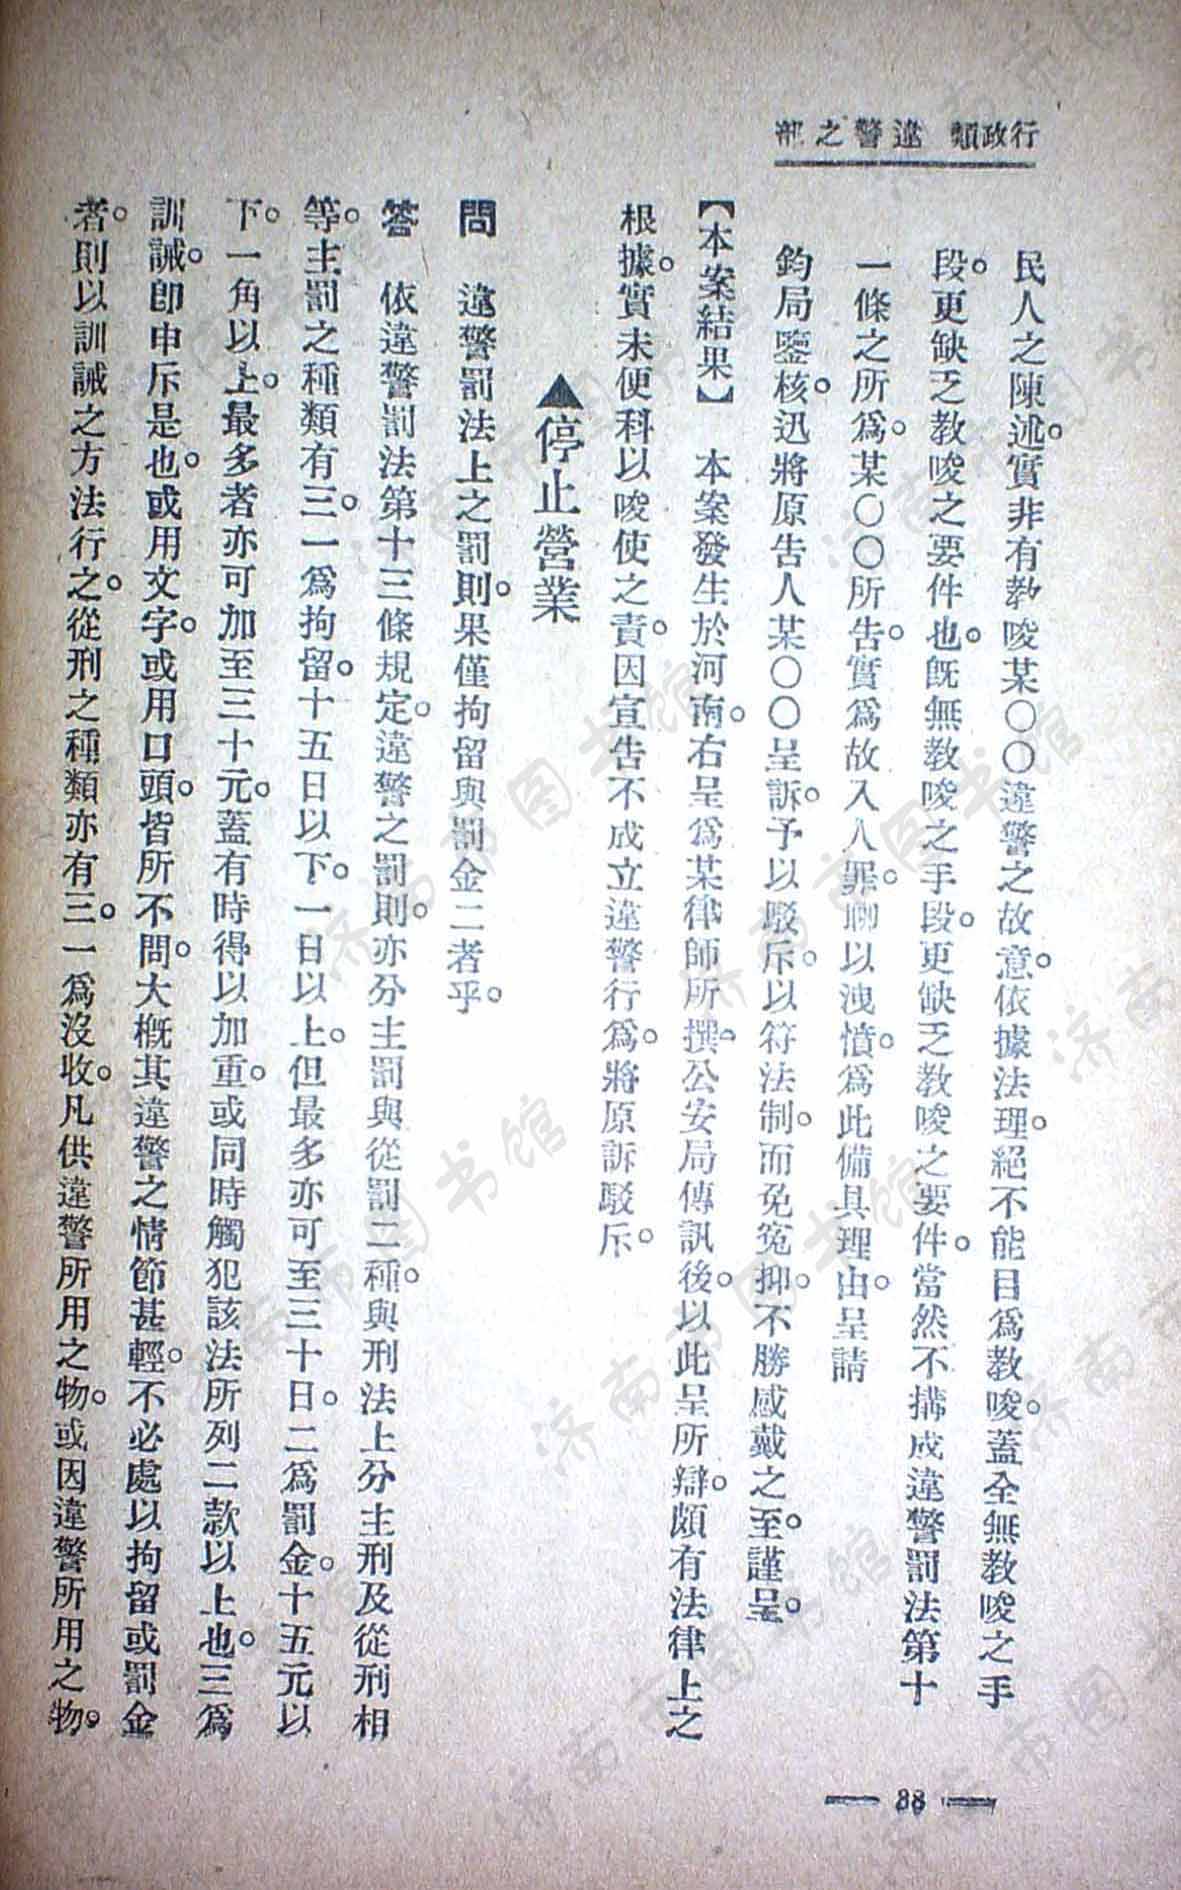 行政類 違警之部
民人之陳述。實非有教唆某〇〇違警之故意。依據法理。絕不能目爲教唆。蓋全無教唆之手
段。更缺乏教唆之要件也。旣無教唆之手段。更缺乏教唆之要件。當然不搆成違警罰法第十
一條之所爲。某〇〇所告。實爲故入人罪。聊以洩憤。爲此備具理由。呈請
鈞局鑒核。迅將原告人某〇〇呈訴。予以駁斥。以符法制。而免寃抑。不勝感戴之至。謹呈。
【本案結果】 本案發生於河南。右呈爲某律師所撰。公安局傳訊後。以此呈所辯。頗有法律上之
根據。實未便科以唆使之責。因宣告不成立違警行爲。將原訴駁斥。
▲停止營業
問 違警罰法上之罰則。果僅拘留與罰金二者乎。
答 依違警罰法第十三條規定。違警之罰則。亦分主罰與從罰二種。與刑法上分主刑及從刑相
等。主罰之種類有三。一爲拘留。十五日以下。一日以上。但最多亦可至三十日。二爲罰金。十五元以
下。一角以上。最多者亦可加至三十元。蓋有時得以加重。或同時觸犯該法所列二款以上也。三爲
訓誡。卽申斥是也。或用文字。或用口頭。皆所不問。大槪其違警之情節甚輕。不必處以拘留或罰金
者。則以訓誡之方法行之。從刑之種類亦有三。一爲沒收。凡供違警所用之物。或因違警所用之物。
— 88 —
济南市图书馆
济南市图书馆
济南市图书馆
济南市图书馆